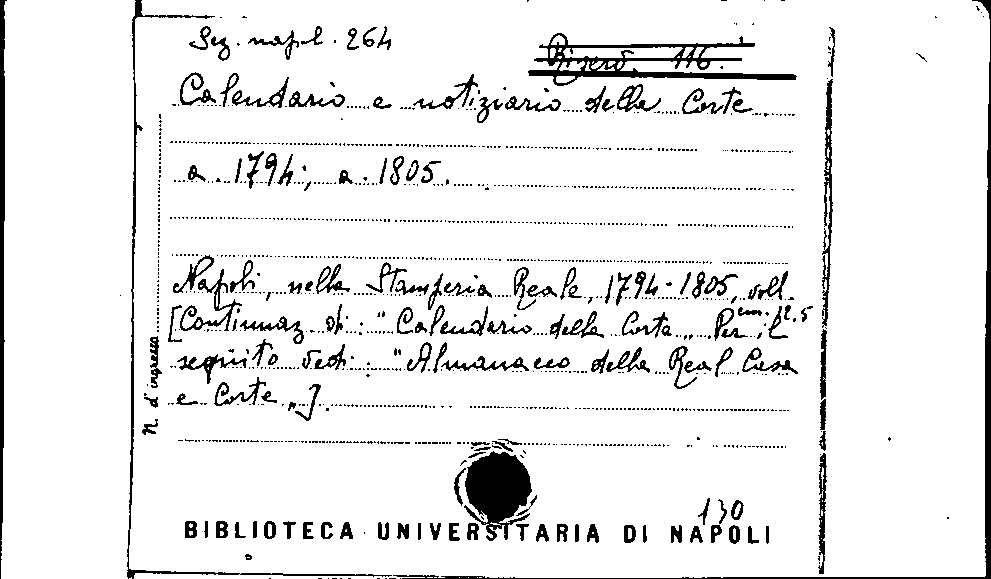 Sez. napol. 264
Riserv. 116.
Calendario e notiziario della Corte
a. 1794; a. 1805.
Napoli, nella Stamperia Reale, 1794-1805, voll.
cm. 12.5
[Continuaz. di: "Calendario della Corte„ Per il
seguito vedi: "Almanacco della Real Casa
e Corte„].
N. d'ingresso
130
BIBLIOTECA UNIVERSITARIA DI NAPOLI